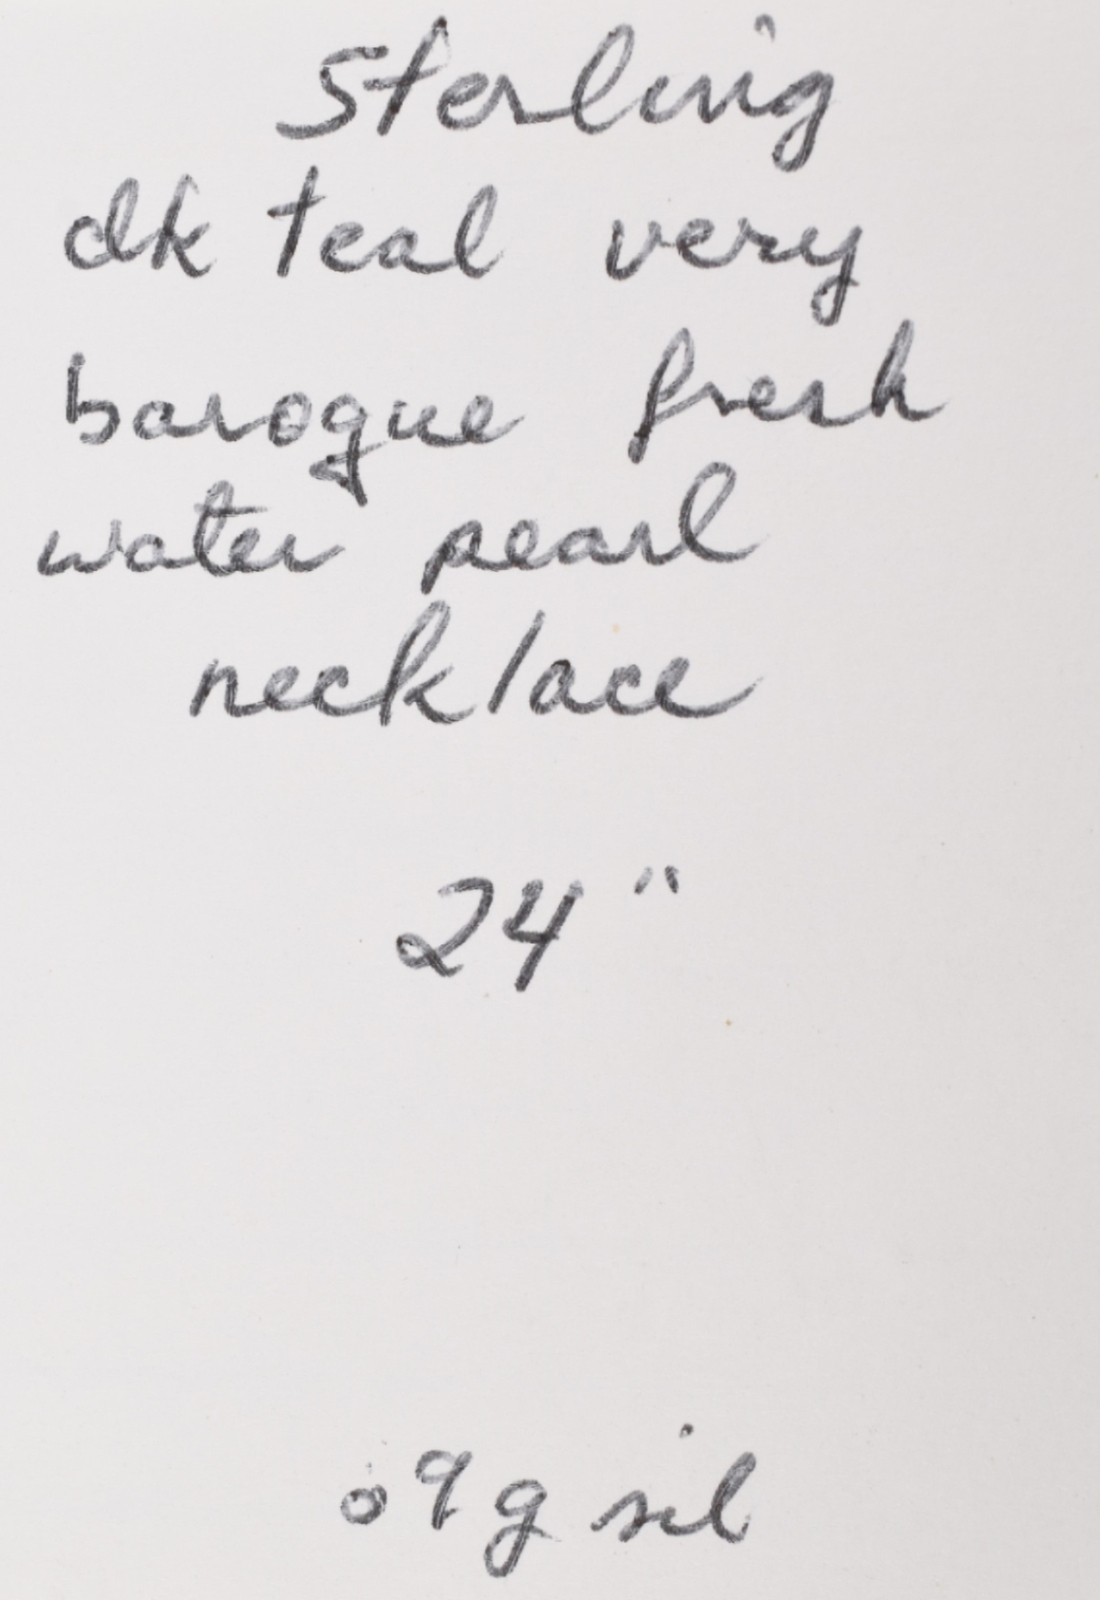 Sterling
dk teal very
baroque fresh
water pearl
necklace
24"
09 g sil